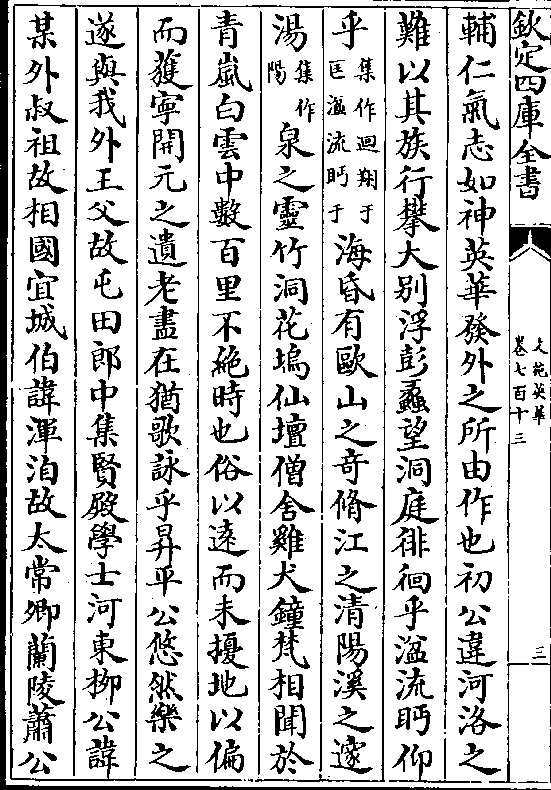 欽定四庫全書
文苑英華
卷七百十三
三
輔仁氣志如神英華發外之所由作也初公違河洛之
難以其族行攀大别浮彭蠡望洞庭徘徊乎湓流眄仰
乎集作迴翔于匡湓流眄于海昏有歐山之竒脩江之清陽溪之邃
湯集作陽泉之靈竹洞花塢仙壇僧舍雞犬鐘梵相聞於
青嵐白雲中數百里不絶時也俗以遠而未擾地以偏
而獲寧開元之遺老盡在猶歌詠乎昇平公悠然樂之
遂與我外王父故屯田郎中集賢殿學士河東栁公諱
某外叔祖故相國宜城伯諱渾洎故太常卿蘭陵蕭公